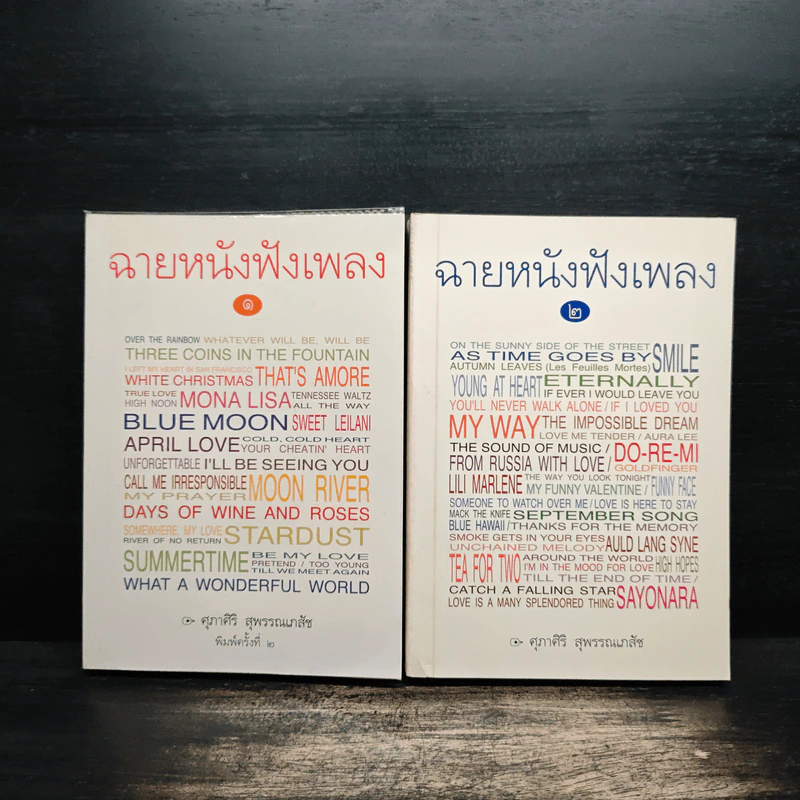 ฉายหนังฟังเพลง
๑
OVER THE RAINBOW WHATEVER WILL BE, WILL BE
THREE COINS IN THE FOUNTAIN
I LEFT MY HEART IN SAN FRANCISCO
WHITE CHRISTMAS THAT'S AMORE
TRUE LOVE
HIGH NOON MONA LISA TENNESSEE WALTZ
ALL THE WAY
BLUE MOON SWEET LEILANI
APRIL LOVE COLD, COLD HEART
YOUR CHEATIN' HEART
UNFORGETTABLE I'LL BE SEEING YOU
CALL ME IRRESPONSIBLE MOON RIVER
MY PRAYER
DAYS OF WINE AND ROSES
SOMEWHERE, MY LOVE
RIVER OF NO RETURN STARDUST
SUMMERTIME BE MY LOVE
PRETEND / TOO YOUNG
TILL WE MEET AGAIN
WHAT A WONDERFUL WORLD
ศุภาศิริ สุพรรณเภสัช
พิมพ์ครั้งที่ ๒
ฉายหนังฟังเพลง
๒
ON THE SUNNY SIDE OF THE STREET
AS TIME GOES BY SMILE
AUTUMN LEAVES (Les Feuilles Mortes)
YOUNG AT HEART ETERNALLY
IF EVER I WOULD LEAVE YOU
YOU'LL NEVER WALK ALONE / IF I LOVED YOU
MY WAY THE IMPOSSIBLE DREAM
LOVE ME TENDER / AURA LEE
THE SOUND OF MUSIC / DO-RE-MI
FROM RUSSIA WITH LOVE / GOLDFINGER
LILI MARLENE THE WAY YOU LOOK TONIGHT
MY FUNNY VALENTINE / FUNNY FACE
SOMEONE TO WATCH OVER ME / LOVE IS HERE TO STAY
MACK THE KNIFE SEPTEMBER SONG
BLUE HAWAII / THANKS FOR THE MEMORY
SMOKE GETS IN YOUR EYES AULD LANG SYNE
UNCHAINED MELODY
TEA FOR TWO AROUND THE WORLD
I'M IN THE MOOD FOR LOVE HIGH HOPES
TILL THE END OF TIME /
CATCH A FALLING STAR
LOVE IS A MANY SPLENDORED THING SAYONARA
ศุภาศิริ สุพรรณเภสัช